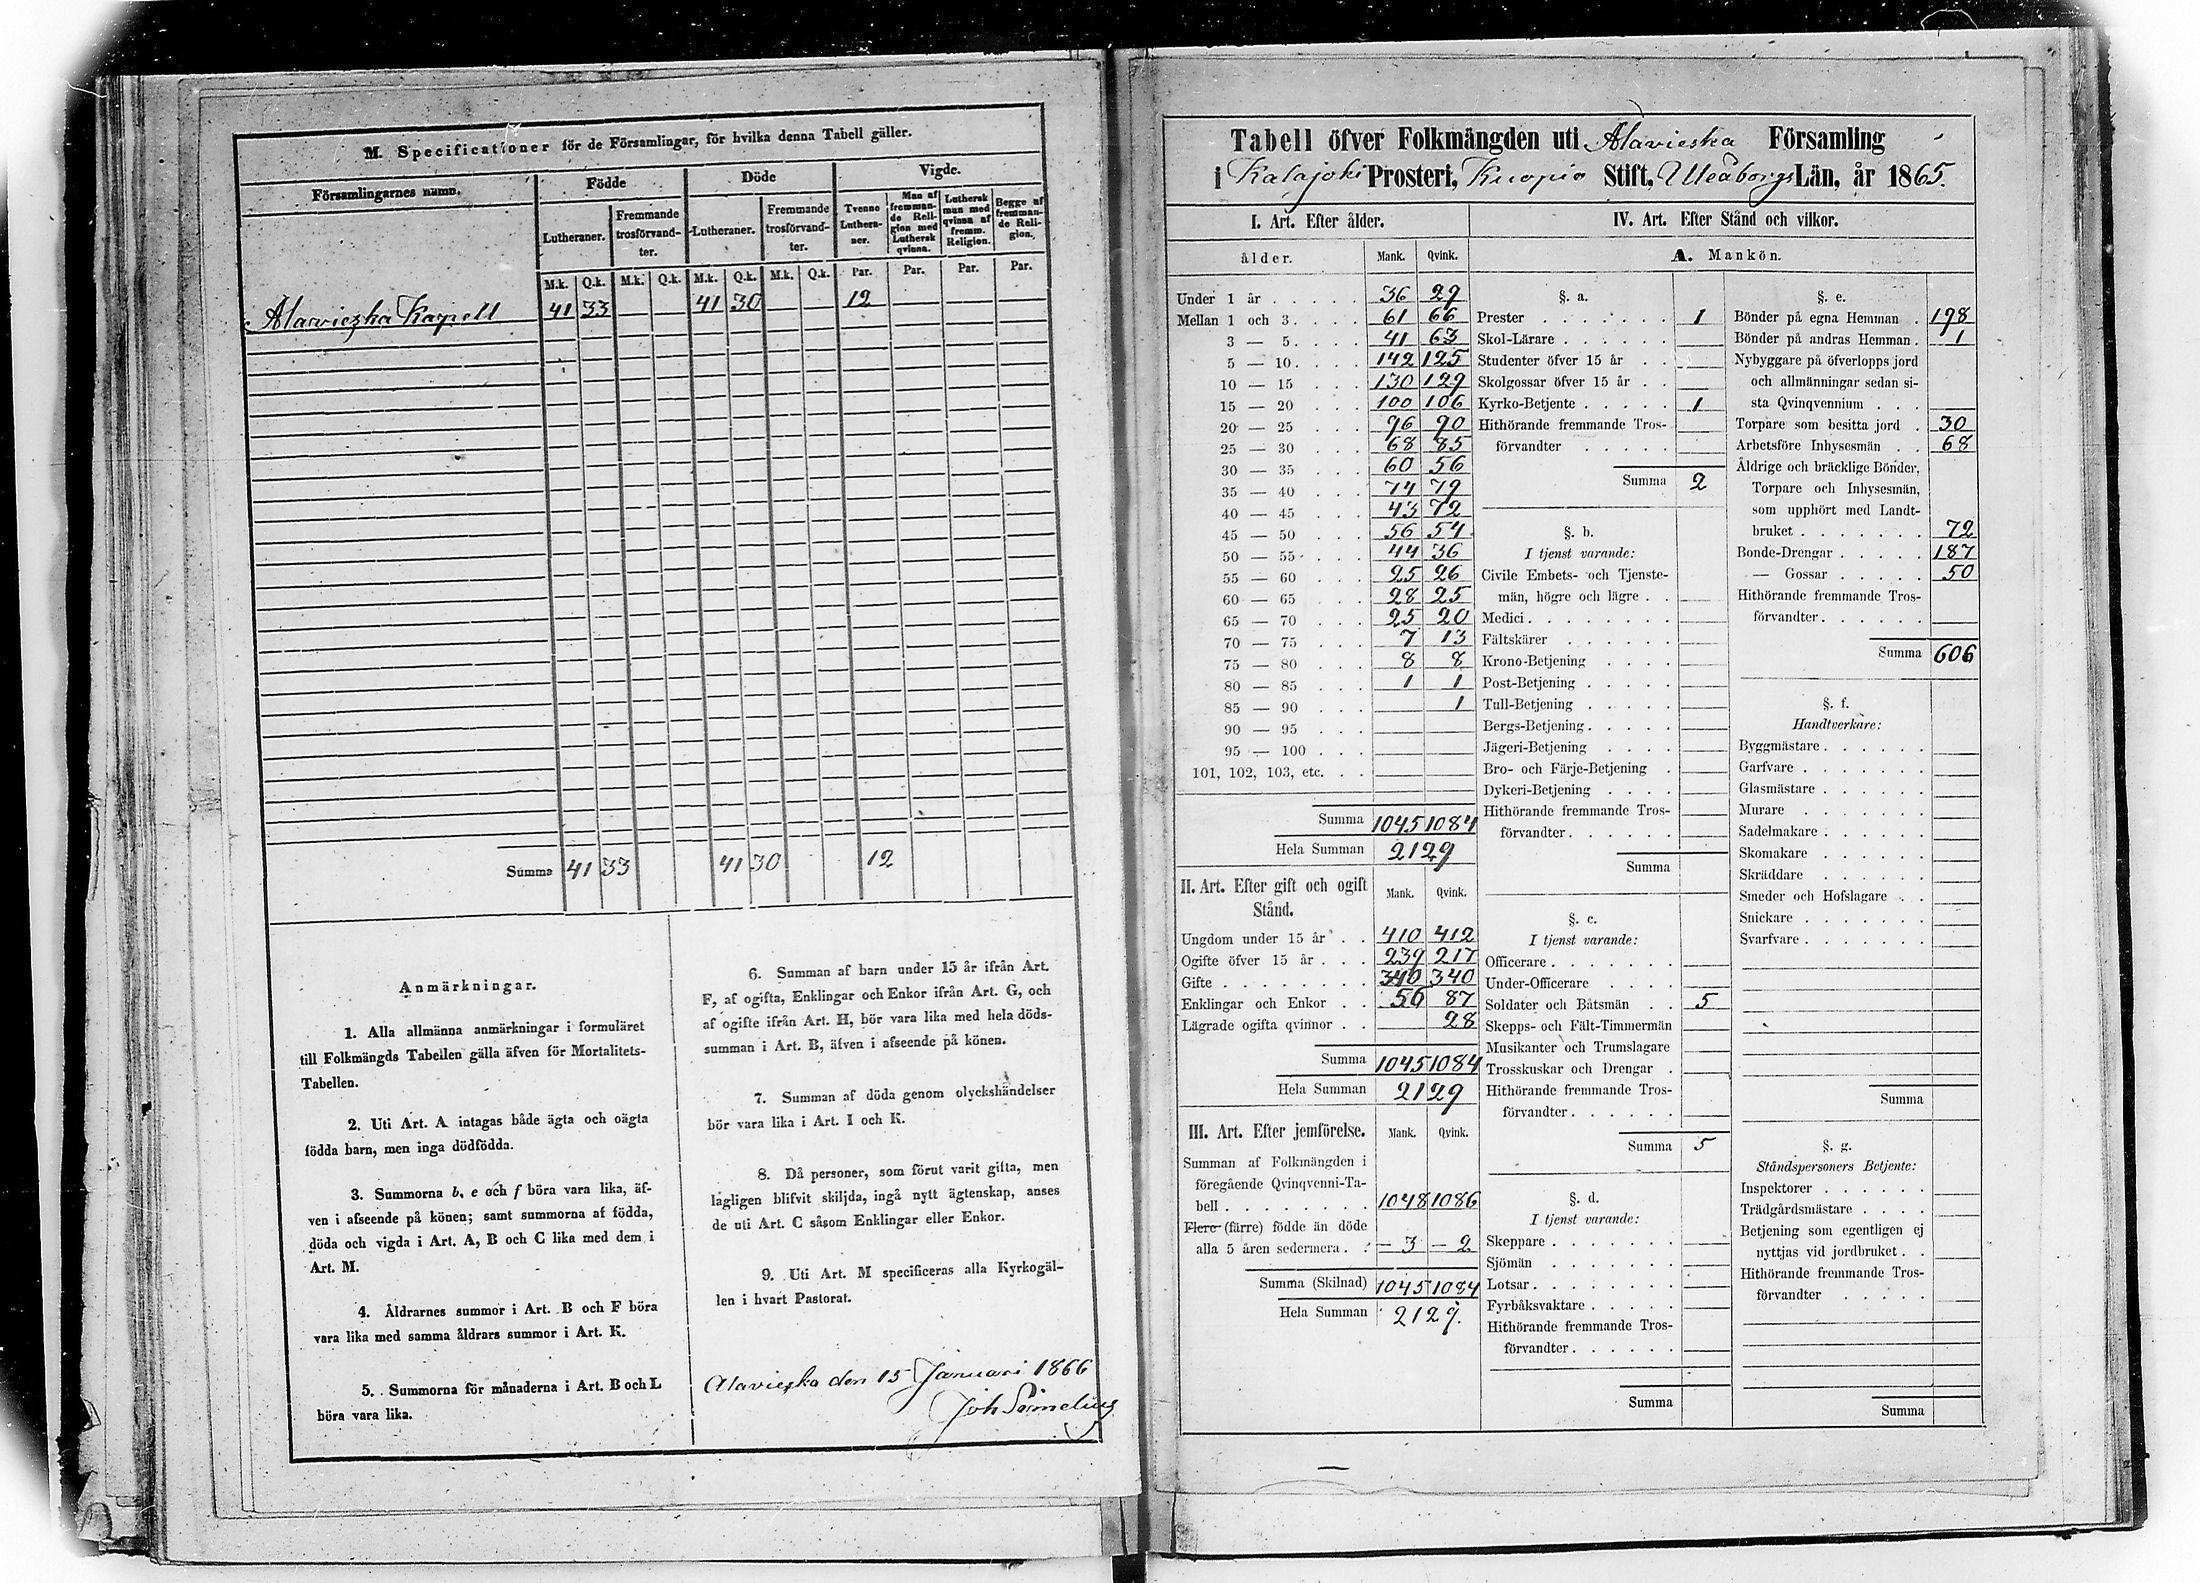 M. Specificationer för de Församlingar, för hvilka denna Tabell gäller.
Församlingarnes namn.
Födde
Döde
Vigde.
Lutheraner.
Fremmande trosförvand-ter.
Lutheraner.
Fremmande trosförvand-ter.
Tvenne Luthera-ner.
Man af fremman-de Reli-gion med Luthersk qvinna.
Luthersk man med qvinna af fremm. Religion.
Begge af fremman-de Reli-gion.
M.k. Q.k. M.k. Q.k. M.k. Q.k. M.k. Q.k. Par. Par. Par. Par.
Alavieska Kapell 41 33 41 30 12
Summa 41 33 41 30 12
Anmärkningar.
1. Alla allmänna anmärkningar i formuläret
till Folkmängds Tabellen gälla äfven för Mortalitets-
Tabellen.
2. Uti Art. A intagas både ägta och oägta
födda barn, men inga dödfödda.
3. Summorna b, e och f böra vara lika, äf-
ven i afseende på könen; samt summorna af födda,
döda och vigda i Art. A, B och C lika med dem i
Art. M.
4. Åldrarnes summor i Art. B och F böra
vara lika med samma åldrars summor i Art. K.
5. Summorna för månaderna i Art. B och L
böra vara lika.
6. Summan af barn under 15 år ifrån Art.
F, af ogifta, Enklingar och Enkor ifrån Art. G, och
af ogifte ifrån Art. H, bör vara lika med hela döds-
summan i Art. B, äfven i afseende på könen.
7. Summan af döda genom olyckshändelser
bör vara lika i Art. I och K.
8. Då personer, som förut varit gifta, men
lagligen blifvit skiljda, ingå nytt ägtenskap, anses
de uti Art. C såsom Enklingar eller Enkor.
9. Uti Art. M specificeras alla Kyrkogäl-
len i hvart Pastorat.
Alavieska den 15 Januari 1866
Joh
Tabell öfver Folkmängden uti Alavieska Församling
i Kalajoki Prosteri, Kuopio Stift, Uleåborgs Län, år 1865.
I. Art. Efter ålder.
ålder. Mank. Qvink.
Under 1 år 36 29
Mellan 1 och 3 61 66
3 — 5 41 63
5 — 10 142 125
10 — 15 130 129
15 — 20 100 106
20 — 25 96 90
25 — 30 68 85
30 — 35 60 56
35 — 40 74 79
40 — 45 43 72
45 — 50 56 54
50 — 55 44 36
55 — 60 25 26
60 — 65 28 25
65 — 70 25 20
70 — 75 7 13
75 — 80 8 8
80 — 85 1 1
85 — 90 1
90 — 95
95 — 100
101, 102, 103, etc.
Summa 1045 1084
Hela Summan 2129
II. Art. Efter gift och ogift Stånd. Mank. Qvink.
Ungdom under 15 år 410 412
Ogifte öfver 15 år 239 217
Gifte 340 340
Enklingar och Enkor 56 87
Lägrade ogifta qvinnor 28
Summa 1045 1084
Hela Summan 2129
III. Art. Efter jemförelse. Mank. Qvink.
Summan af Folkmängden i
föregående Qvinqvenni-Ta-
bell 1048 1086
Flere (färre) födde än döde
alla 5 åren sedermera — 3 — 2
Summa (Skilnad) 1045 1084
Hela Summan 2129.
IV. Art. Efter Stånd och vilkor.
A. Mankön.
§. a.
Prester 1
Skol-Lärare
Studenter öfver 15 år
Skolgossar öfver 15 år
Kyrko-Betjente 1
Hithörande fremmande Tros-
förvandter
Summa 2
§. b.
I tjenst varande:
Civile Embets- och Tjenste-
män, högre och lägre
Medici
Fältskärer
Krono-Betjening
Post-Betjening
Tull-Betjening
Bergs-Betjening
Jägeri-Betjening
Bro- och Färje-Betjening
Dykeri-Betjening
Hithörande fremmande Tros-
förvandter
Summa
§. c.
I tjenst varande:
Officerare
Under-Officerare
Soldater och Båtsmän 5
Skepps- och Fält-Timmermän
Musikanter och Trumslagare
Trosskuskar och Drengar
Hithörande fremmande Tros-
förvandter
Summa 5
§. d.
I tjenst varande:
Skeppare
Sjömän
Lotsar
Fyrbåksvaktare
Hithörande fremmande Tros-
förvandter
Summa
§. e.
Bönder på egna Hemman 198
Bönder på andras Hemman 1
Nybyggare på öfverlopps jord
och allmänningar sedan si-
sta Qvinqvennium
Torpare som besitta jord 30
Arbetsföre Inhysesmän 68
Åldrige och bräcklige Bönder,
Torpare och Inhysesmän,
som upphört med Landt-
bruket 72
Bonde-Drengar 187
— Gossar 50
Hithörande fremmande Tros-
förvandter
Summa 606
§. f.
Handtverkare:
Byggmästare
Garfvare
Glasmästare
Murare
Sadelmakare
Skomakare
Skräddare
Smeder och Hofslagare
Snickare
Svarfvare
Summa
§. g.
Ståndspersoners Betjente:
Inspektorer
Trädgårdsmästare
Betjening som egentligen ej
nyttjas vid jordbruket
Hithörande fremmande Tros-
förvandter
Summa